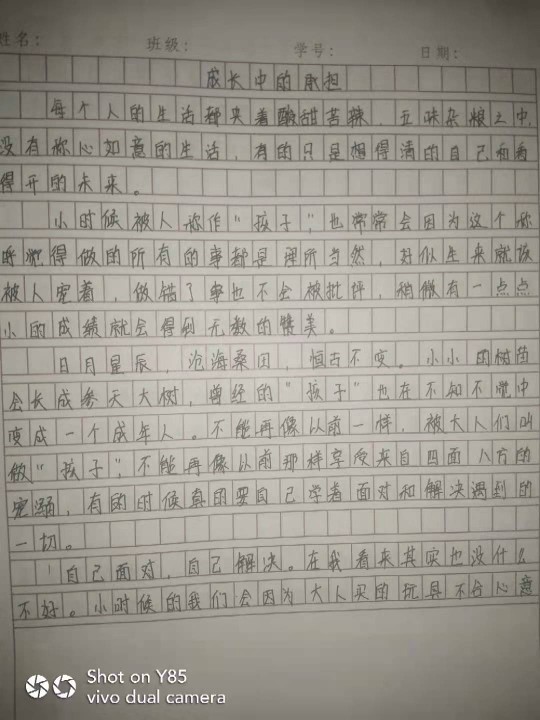 姓名： 班级： 学号： 日期：
成长中的承担
每个人的生活都夹着酸甜苦辣，五味杂粮之中，
没有称心如意的生活，有的只是想得清的自己和看
得开的未来。
小时候被人称作“孩子”，也常常会因为这个称
呼觉得做的所有的事都是理所当然，好似生来就该
被人宠着，做错了事也不会被批评，稍微有一点点
小的成绩就会得到无数的赞美。
日月星辰，沧海桑田，恒古不变。小小的树苗
会长成参天大树，曾经的“孩子”也在不知不觉中
变成一个成年人。不能再像以前一样，被大人们叫
做“孩子”，不能再像以前那样享受来自四面八方的
宠溺，有的时候真的要自己学着面对和解决遇到的
一切。
自己面对，自己解决。在我看来其实也没什么
不好。小时候的我们会因为大人买的玩具不合心意
Shot on Y85
vivo dual camera